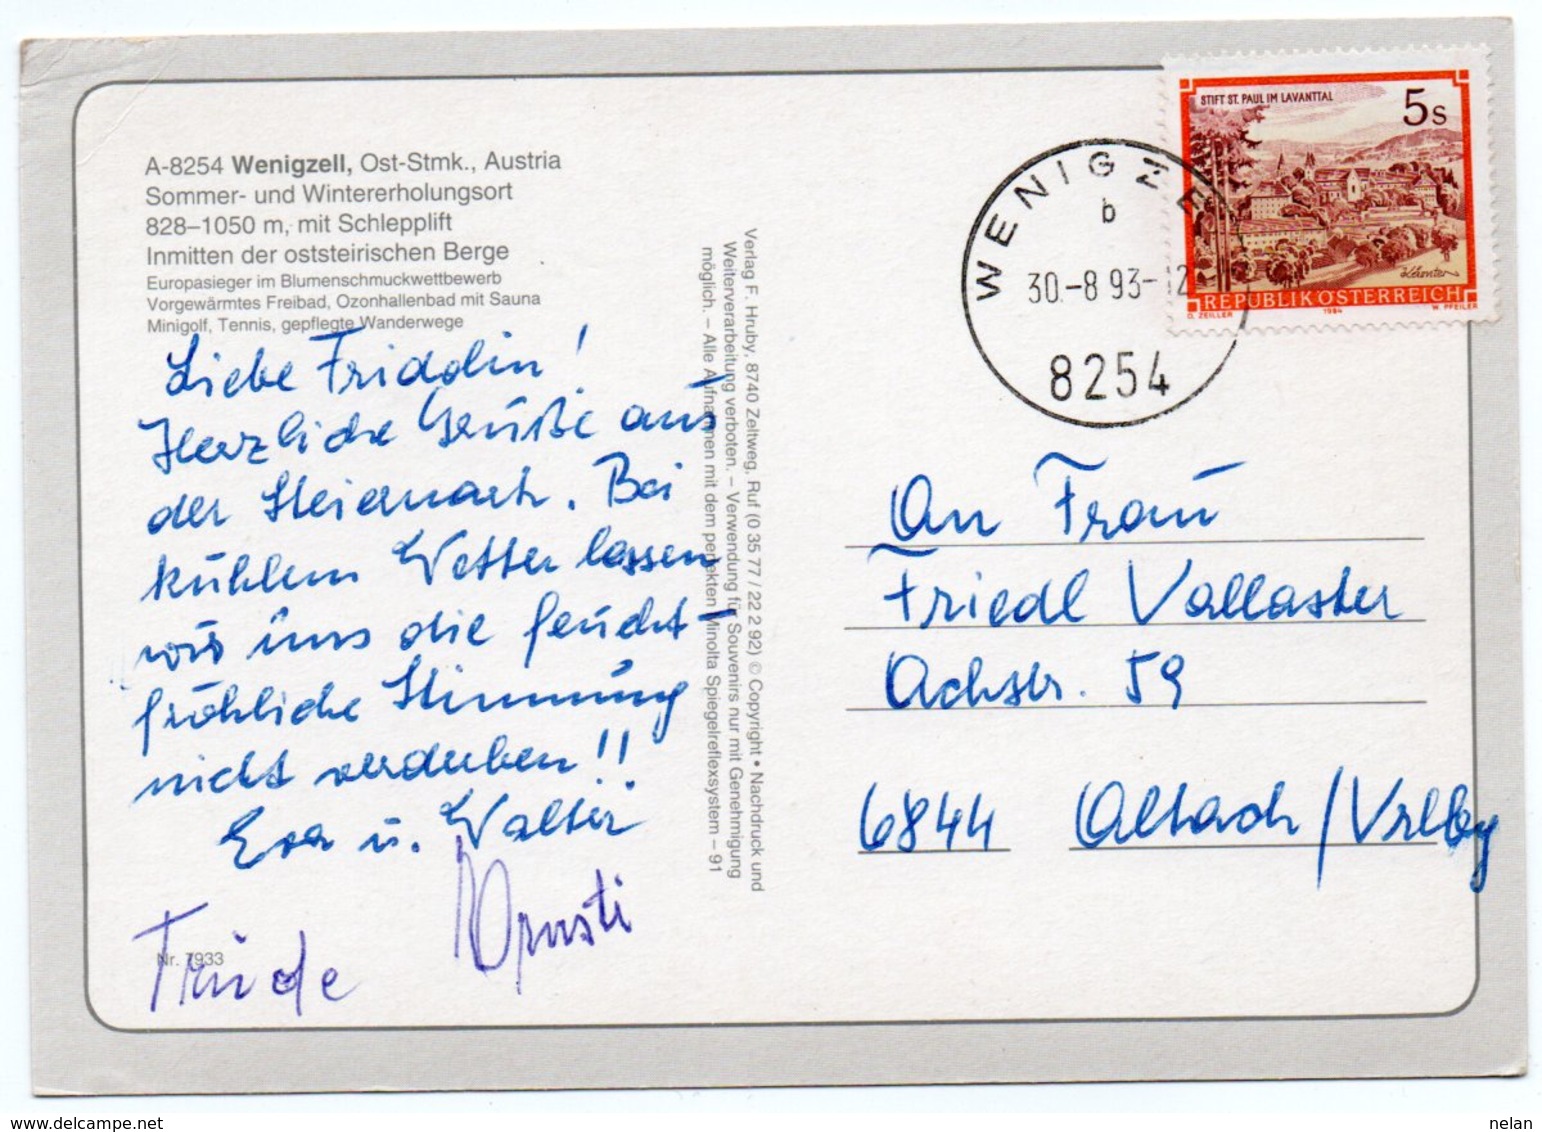 A-8254 Wenigzell, Ost-Stmk., Austria
Sommer- und Wintererholungsort
828–1050 m, mit Schlepplift
Inmitten der oststeirischen Berge
Europasieger im Blumenschmuckwettbewerb
Vorgewärmtes Freibad, Ozonhallenbad mit Sauna
Minigolf, Tennis, gepflegte Wanderwege
Liebe Fridolin!
Herzliche Grüße aus
der Steiermark. Bei
kühlem Wetter lassen
wir uns die feucht-
fröhliche Stimmung
nicht verderben!!
Eva u. Walter
Trude
Nr. 7933
Verlag F. Hruby, 8740 Zeltweg, Ruf (0 35 77 / 22 2 92) © Copyright • Nachdruck und
Weiterverarbeitung verboten. – Verwendung für Souvenirs nur mit Genehmigung
möglich. – Alle Aufnahmen mit dem perfekten Minolta Spiegelreflexsystem – 91
WENIGZE
b
30.-8 93-12
8254
STIFT ST. PAUL IM LAVANTTAL
5s
Kärnten
REPUBLIK ÖSTERREICH
O. ZEILLER 1984 W. PFEILER
An Frau
Friedl Vallaster
Achstr. 59
6844 Altach/Vrlbg
www.delcampe.net
nelan